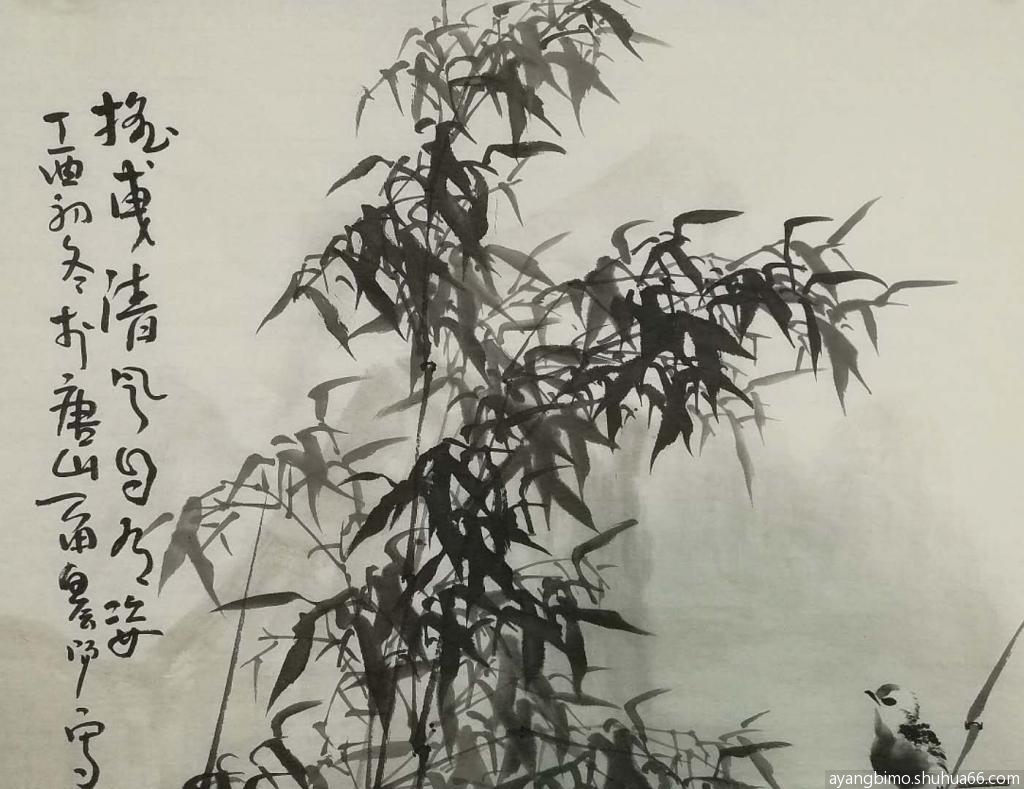 摇曳清风自有姿
丁酉初冬於唐山写
ayangbimo.shuhua66.com